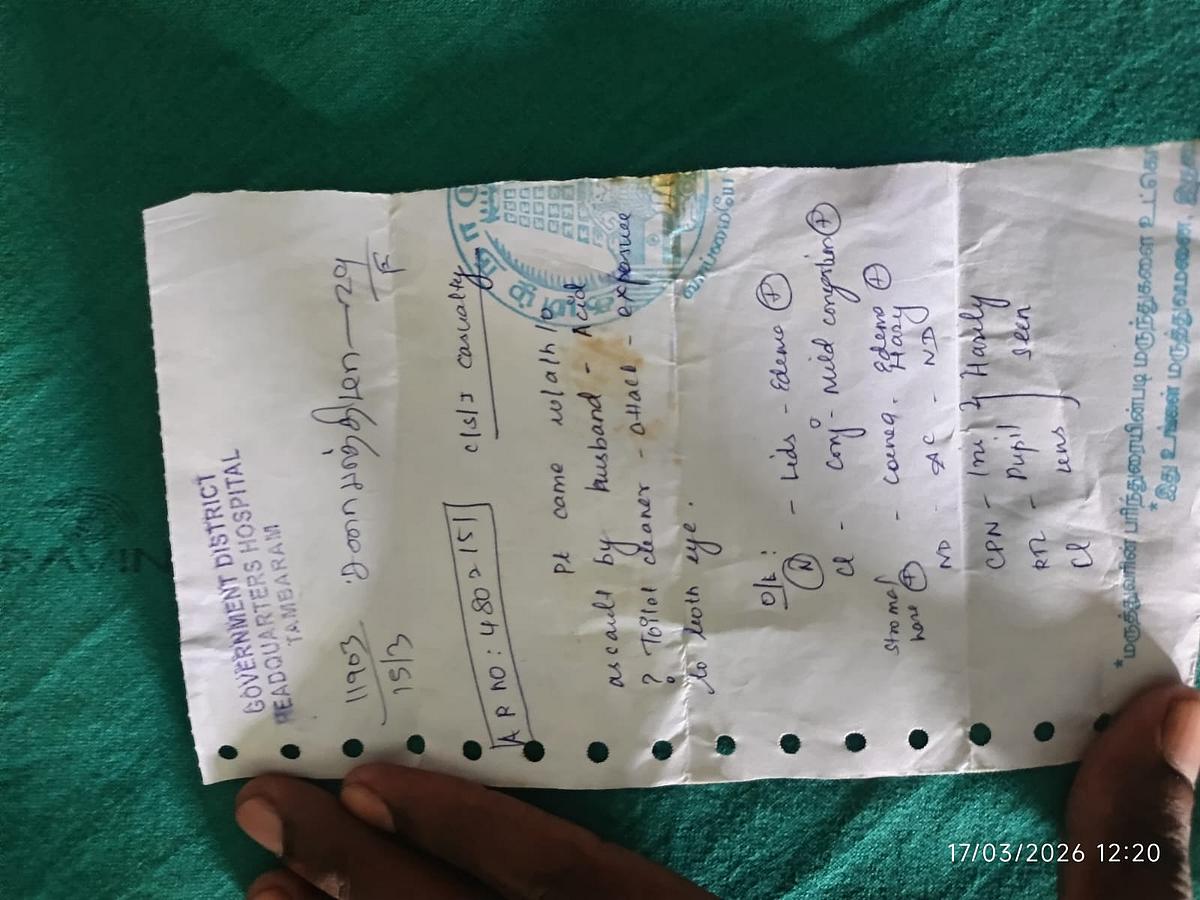 GOVERNMENT DISTRICT
HEADQUARTERS HOSPITAL
TAMBARAM
11903
15/3
29
F
AR no: 4802151
c/s/s casualty
Pt came with h/o
assault by husband - Acid
? Toilet cleaner - attack - exposure
to both eye.
O/E:
N - Lids - Edema +
Cl - Conj - Mild congestion +
stromal haze + - cornea - Edema + Hazy
ND - AC - ND
CPN - Iris } Hazily
- Pupil } seen
Cl lens
*மருத்துவரின் பரிந்துரையின்படி மருந்துகளை உட்கொ
17/03/2026 12:20